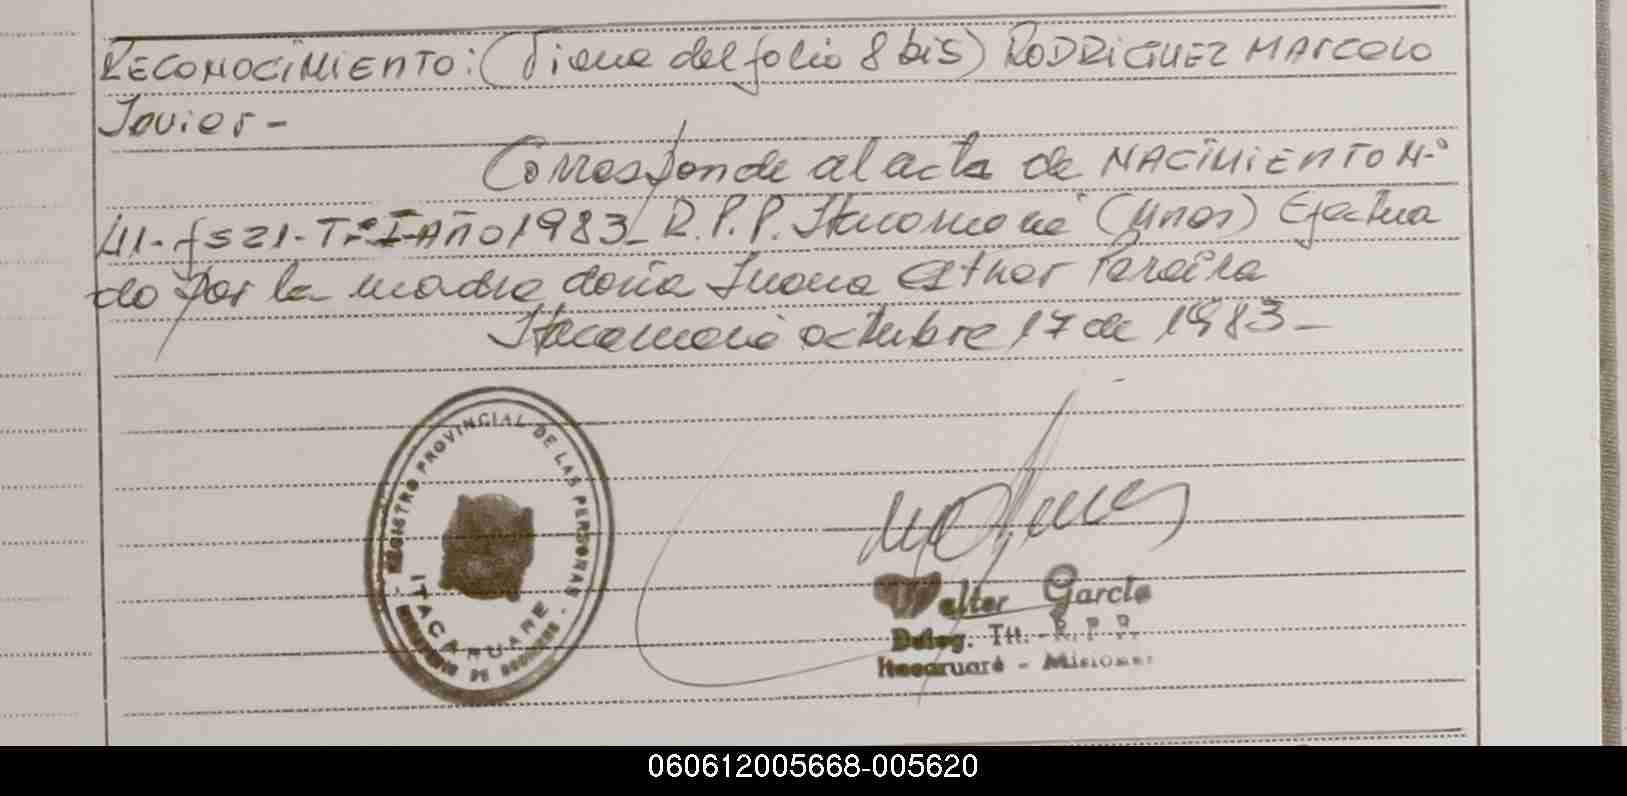 RECONOCIMIENTO: (Viene del folio 8 bis) RODRIGUEZ MARCELO
Javier -
Corresponde al acta de NACIMIENTO N°
41 - fs 21 - T° I - AÑO 1983 - R.P.P. Itacaruaré (Mnes) Efectua
do por la madre doña Juana Esther Pereira
Itacaruaré octubre 17 de 1983 -
REGISTRO PROVINCIAL DE LAS PERSONAS
ITACARUARE
Walter García
Deleg. Tit. - R.P.P.
Itacaruaré - Misiones
060612005668-005620